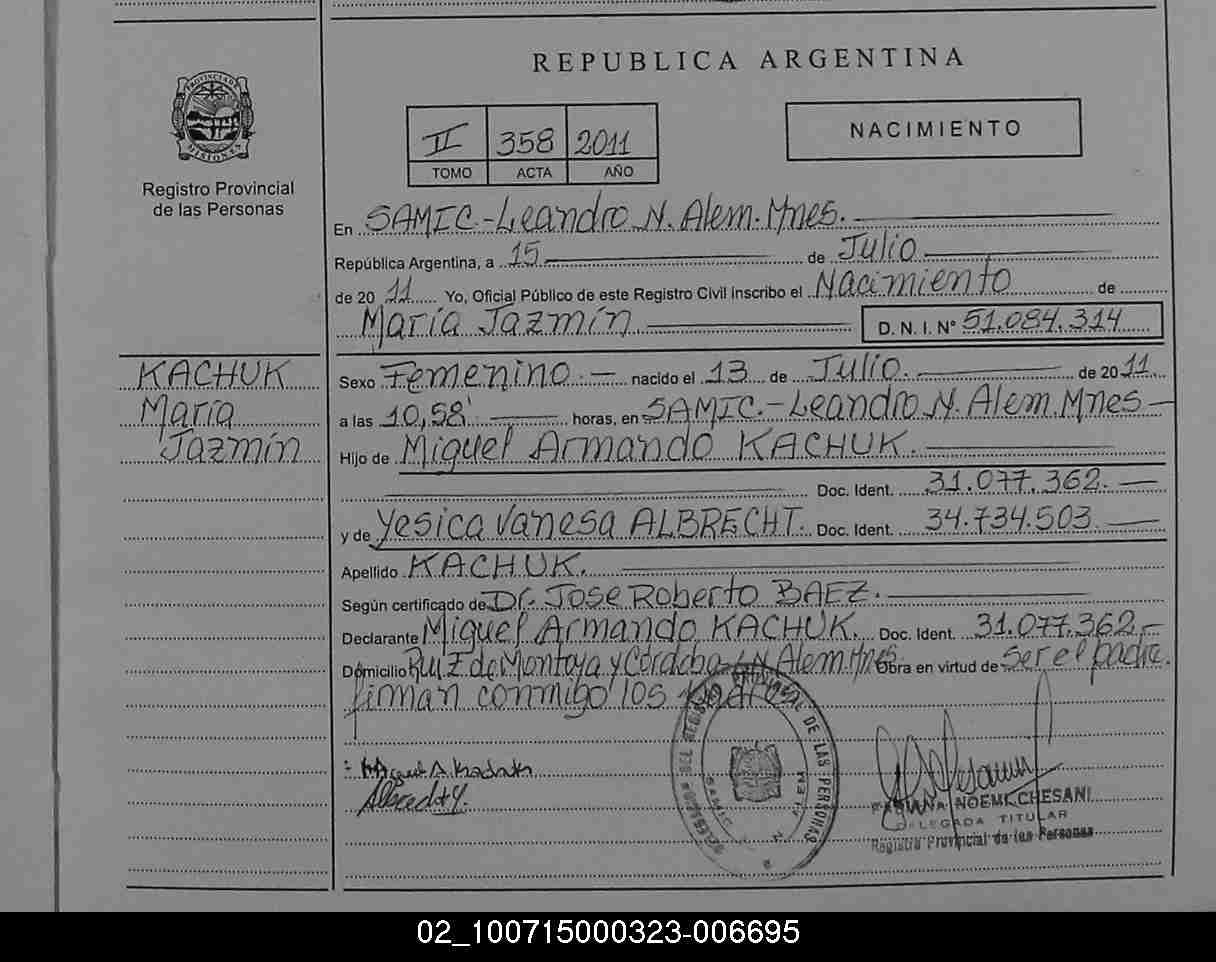 REPUBLICA ARGENTINA
PROVINCIA DE MISIONES
Registro Provincial
de las Personas
II 358 2011
TOMO ACTA AÑO
NACIMIENTO
En SAMIC.-Leandro N. Alem.Mnes.
República Argentina, a 15 de Julio
de 20 11 Yo, Oficial Público de este Registro Civil inscribo el Nacimiento de
María Jazmín D. N. I. N° 51.084.314
KACHUK
María
Jazmín
Sexo Femenino.- nacido el 13 de Julio. de 20 11
a las 10,58' horas, en SAMIC.-Leandro N. Alem Mnes-
Hijo de Miguel Armando KACHUK.
Doc. Ident. 31.077.362.-
y de Yesica Vanesa ALBRECHT. Doc. Ident. 34.734.503.
Apellido KACHUK.
Según certificado de Dr. Jose Roberto BAEZ.
Declarante Miguel Armando KACHUK. Doc. Ident. 31.077.362.-
Domicilio Ruiz de Montoya y Córdoba-L.N.Alem.Mnes. Obra en virtud de ser el padre.
firman conmigo los
Miguel A Kachuk
Albrecht Y.
DEL REGISTRO PROVINCIAL DE LAS PERSONAS
SAMIC N. ALEM
FABIANA NOEMI CHESANI
DELEGADA TITULAR
Registro Provincial de las Personas
02_100715000323-006695